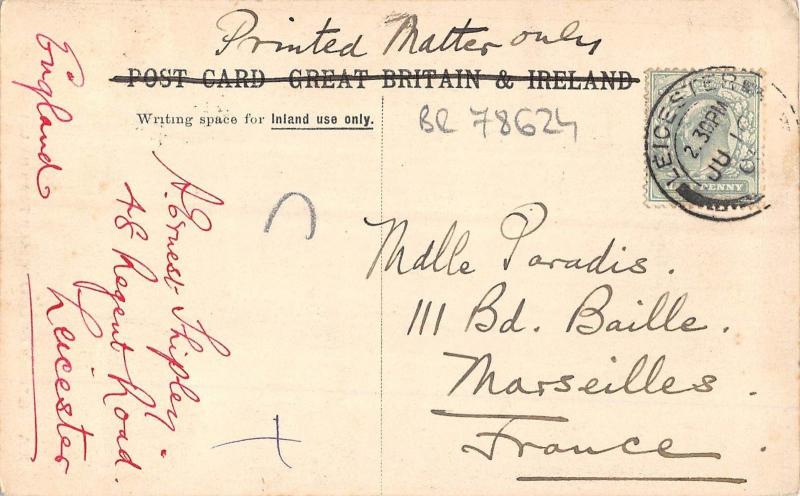 Printed Matter only
POST CARD GREAT BRITAIN & IRELAND
Writing space for Inland use only.
BR 78624
LEICESTER
2.30PM
JU 1
PENNY
A. Ernest Shipley
48 Regent Road.
Leicester
England
Mdlle Paradis.
111 Bd. Baille.
Marseilles.
France.